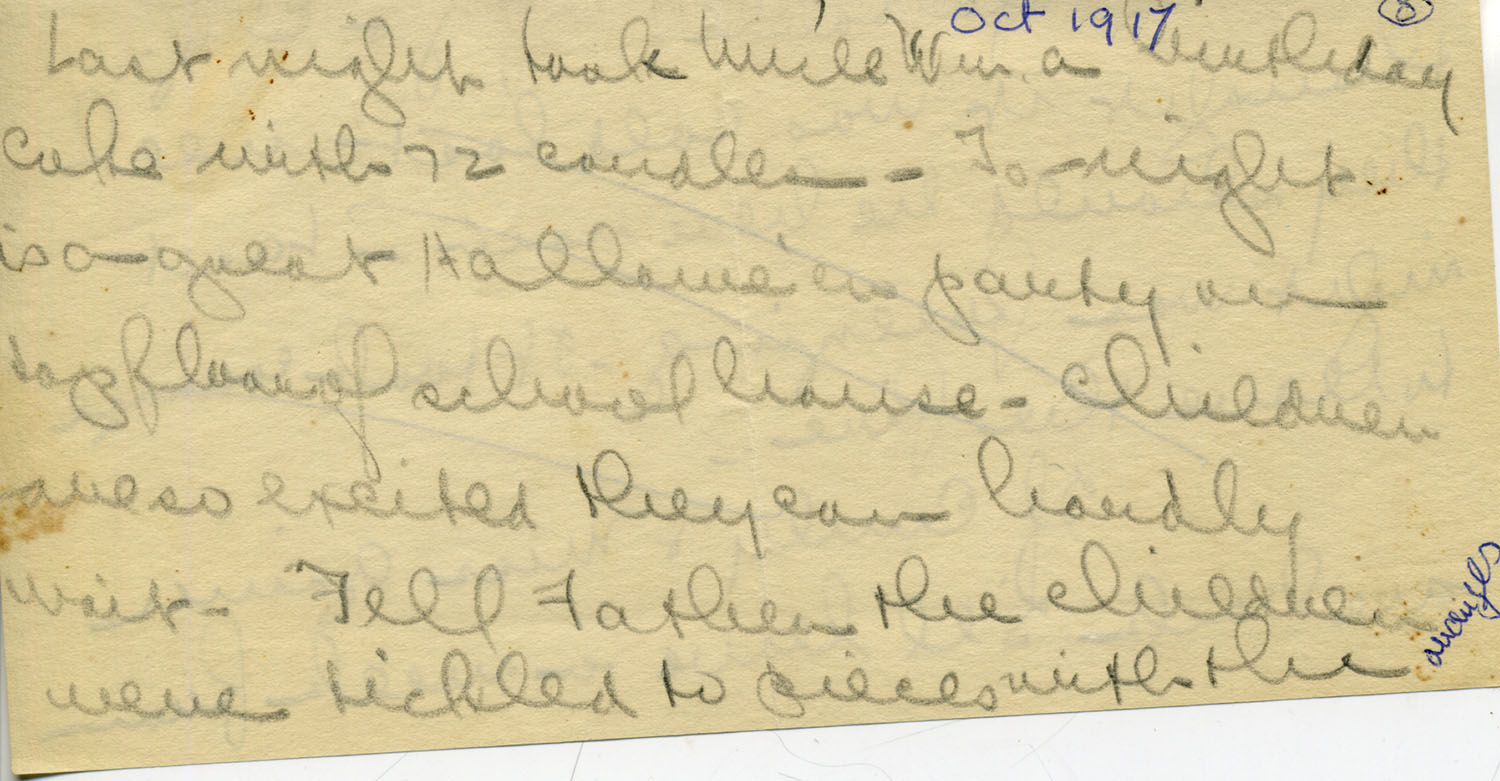 Oct 1917
Last night took Uncle Wm. a birthday
cake with 72 candles - To-night
is a great Hallowe'en party on
top floor of school house - Children
are so excited they can hardly
wait - Tell Father the children
were tickled to pieces with the
oranges